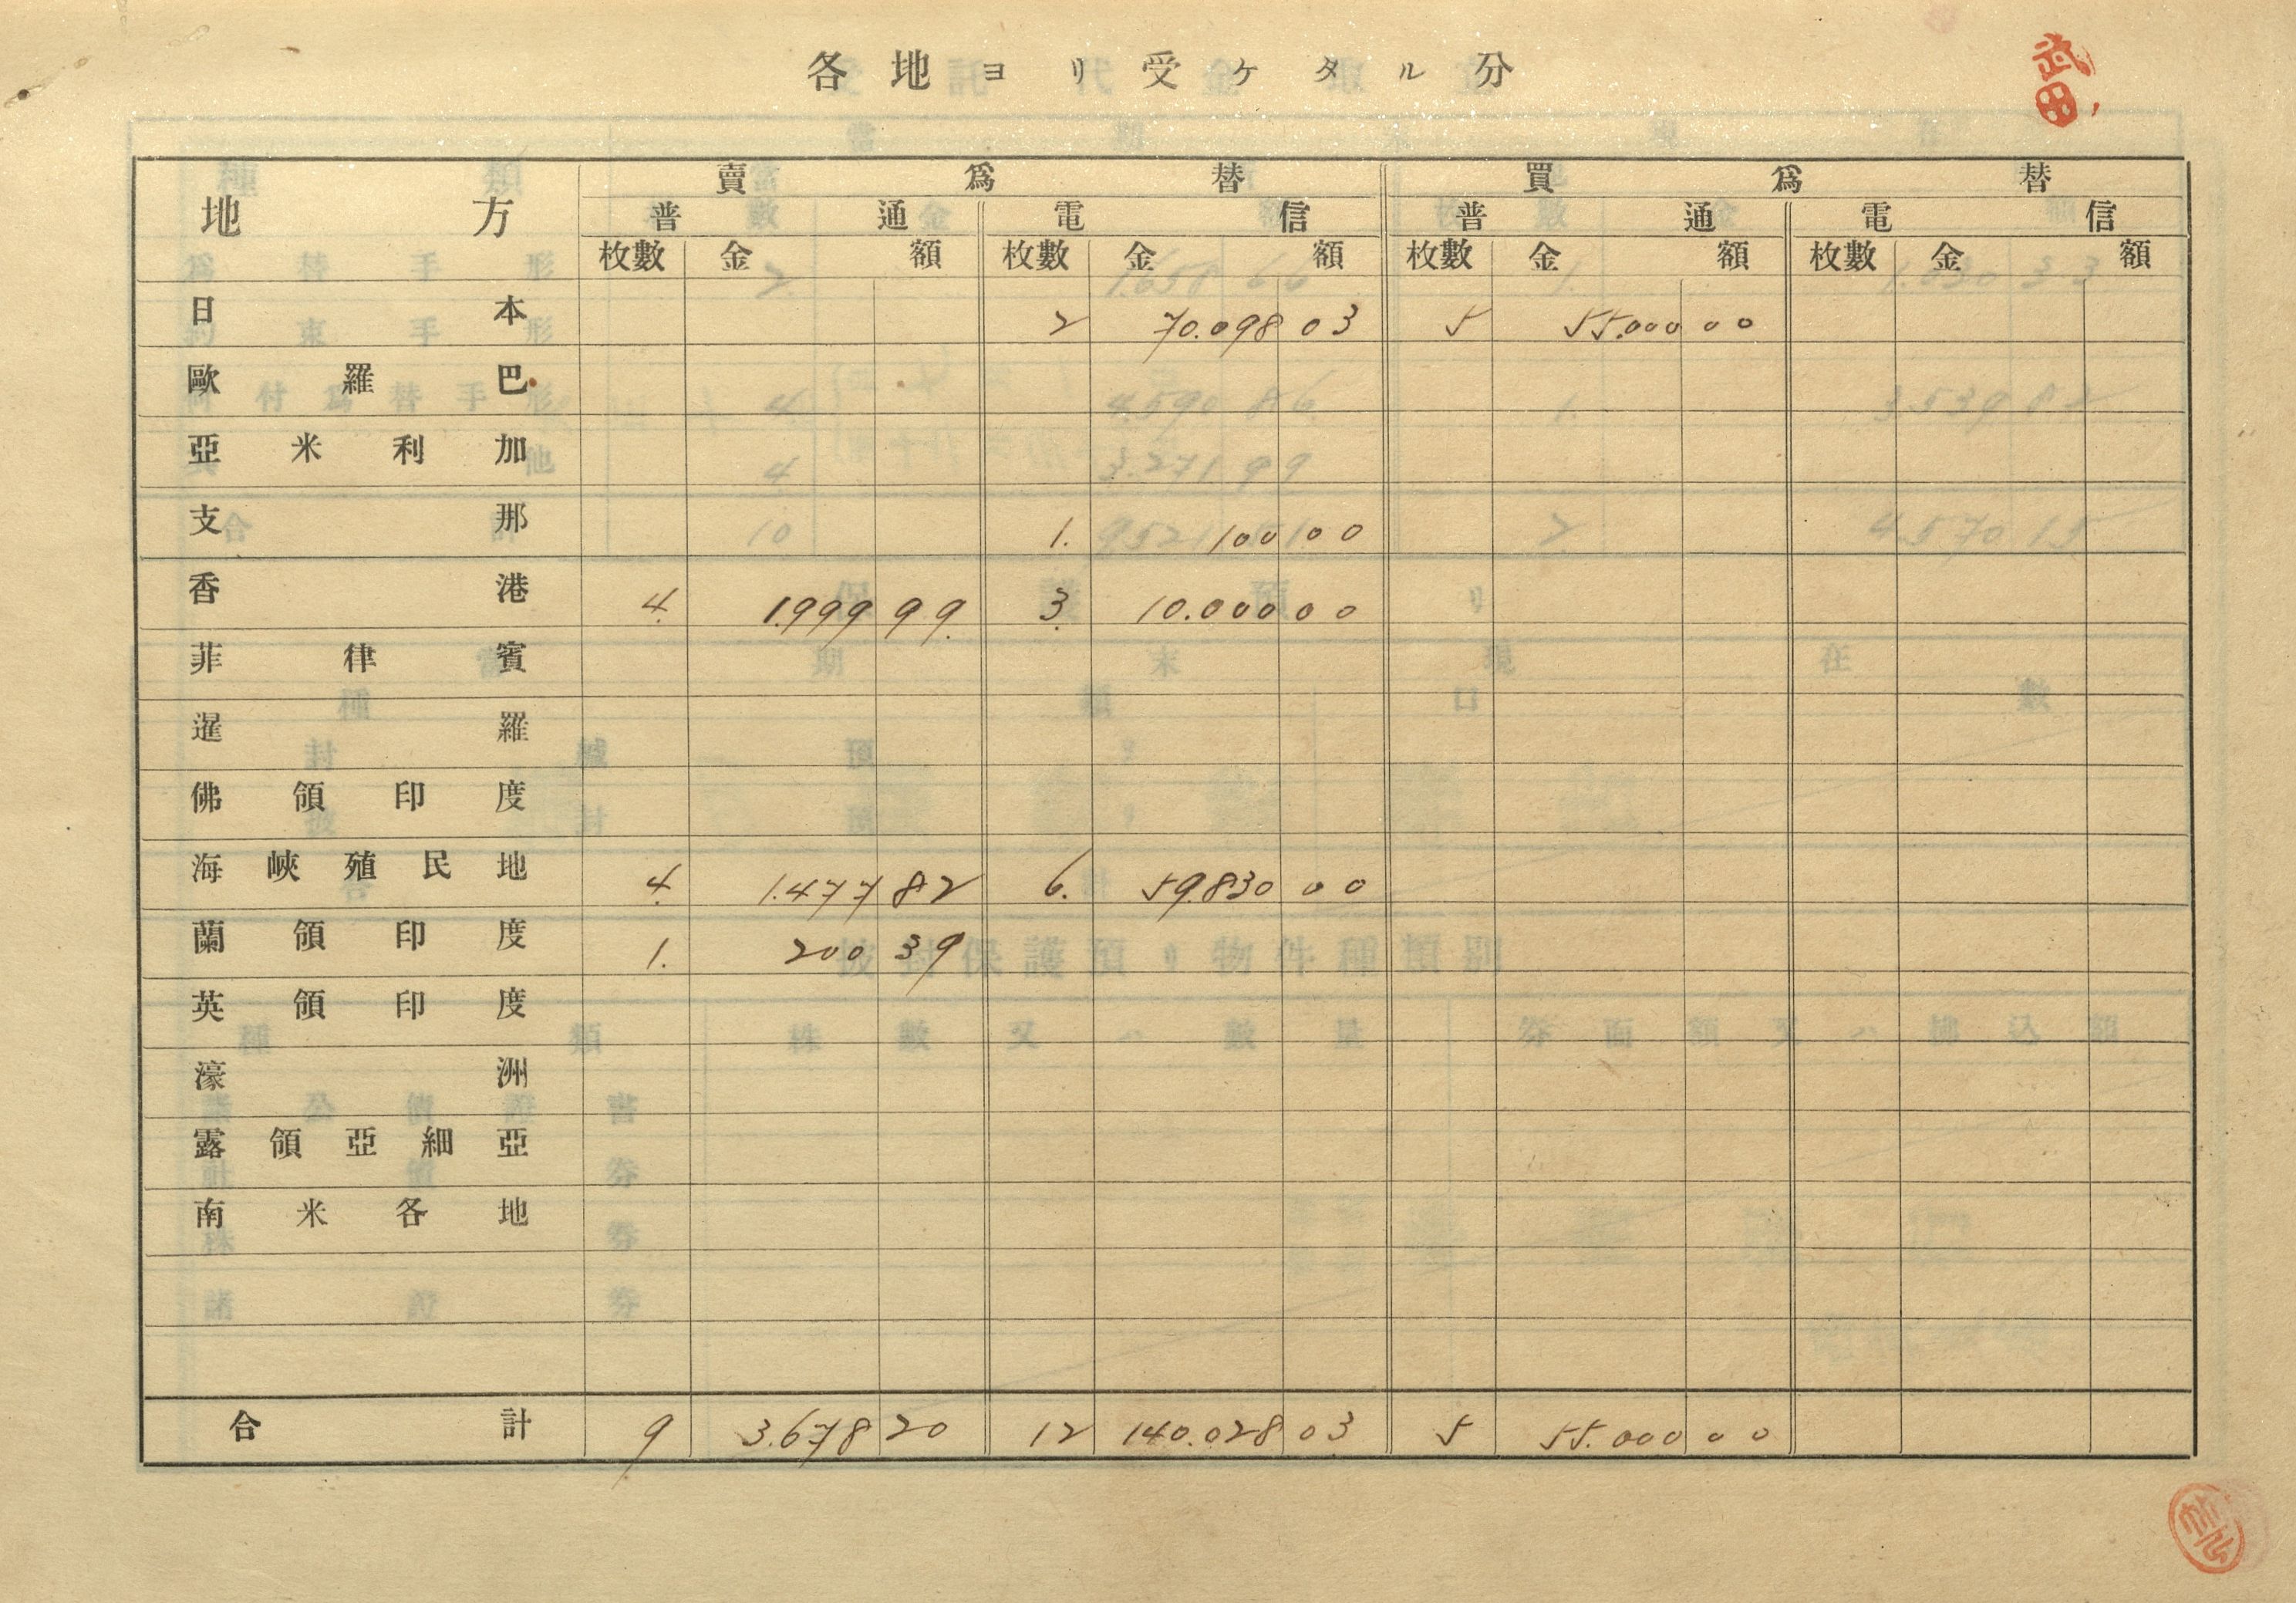 各地ヨリ受ケタル分
武田
地方 賣爲替 買爲替
普通 電信 普通 電信
枚數 金額 枚數 金額 枚數 金額 枚數 金額
日本 2 70.098 03 5 55.000 00
歐羅巴
亞米利加
支那 1. 100 00
香港 4. 1.999 99. 3. 10.000 00
菲律賓
暹羅
佛領印度
海峽殖民地 4. 1.477 82 6. 59.830 00
蘭領印度 1. 200 39
英領印度
濠洲
露領亞細亞
南米各地
合計 9 3.678 20 12 140.028 03 5 55.000 00